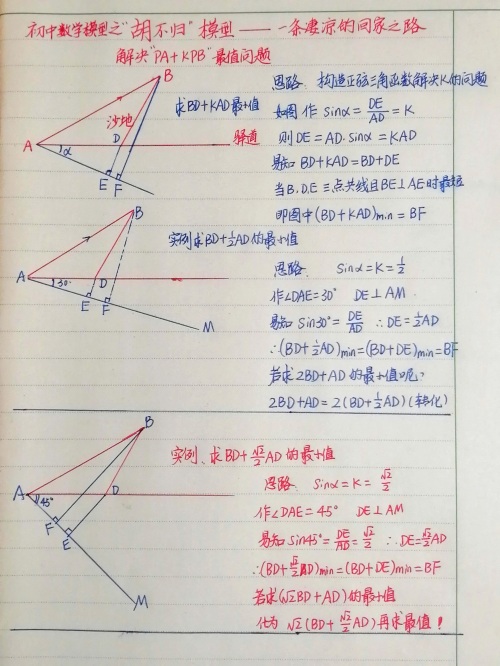 初中数学模型之"胡不归"模型——一条凄凉的回家之路
解决"PA+KPB"最值问题
B
求BD+KAD最小值
沙地
D
驿道
A
α
E
F
思路：构造正弦三角函数解决K的问题
如图作 sinα=DE/AD=K
则DE=AD·sinα=KAD
易知BD+KAD=BD+DE
当B.D.E三点共线且BE⊥AE时最短
即图中(BD+KAD)min=BF
B
实例求BD+1/2AD的最小值
A
30°
D
E
F
M
思路： Sinα=K=1/2
作∠DAE=30° DE⊥AM
易知Sin30°=DE/AD ∴DE=1/2AD
∴(BD+1/2AD)min=(BD+DE)min=BF
若求2BD+AD的最小值呢?
2BD+AD=2(BD+1/2AD)(转化)
B
实例、求BD+√2/2AD的最小值
A
45°
D
F
E
M
思路： Sinα=K=√2/2
作∠DAE=45° DE⊥AM
易知sin45°=DE/AD=√2/2 ∴DE=√2/2AD
∴(BD+√2/2AD)min=(BD+DE)min=BF
若求(√2BD+AD)的最小值
化为√2(BD+√2/2AD)再求最值!